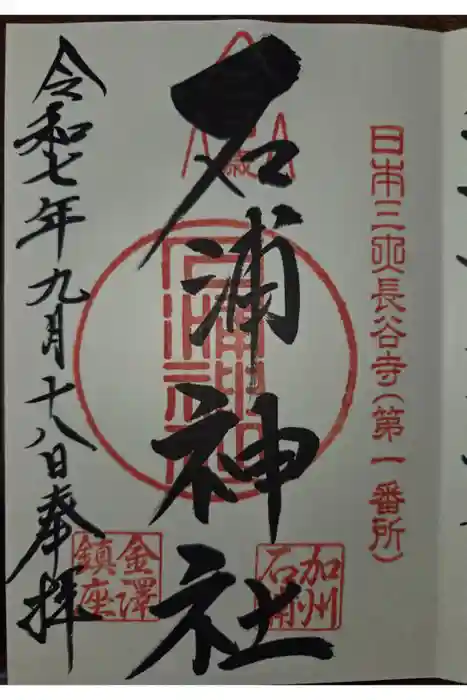 日本三大長谷寺(第一番所)
石浦神社
石浦神社
加州
石浦
金澤
鎮座
令和七年九月十八日奉拝